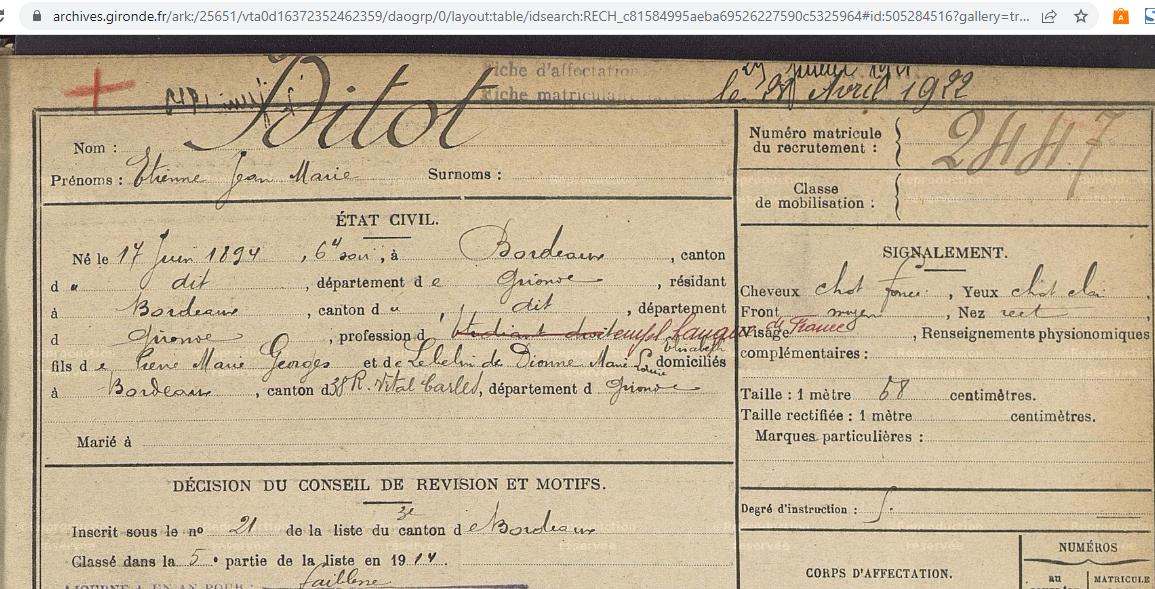 archives.gironde.fr/ark:/25651/vta0d16372352462359/daogrp/0/layout:table/idsearch:RECH_c81584995aeba69526227590c5325964#id:505284516?gallery=tr...
Fiche d'affectation
Fiche matricul
le Avril 1922
Nom : Bitot
Prénoms : Etienne Jean Marie Surnoms :
Numéro matricule du recrutement : 2447
Classe de mobilisation :
ÉTAT CIVIL.
Né le 17 Juin 1894, à Bordeaux, canton
d u dit, département de Gironde, résidant
à Bordeaux, canton du dit, département
d Gironde, profession d étudiant droit
fils de Pierre Marie Georges et de Lebelin de Dionne Marie Louise Elisabeth domiciliés
à Bordeaux, canton d 38 R. Vital Carles, département d Gironde
Marié à
SIGNALEMENT.
Cheveux chat foncé, Yeux chat clair
Front moyen, Nez rect
Visage , Renseignements physionomiques
complémentaires :
Taille : 1 mètre 68 centimètres.
Taille rectifiée : 1 mètre centimètres.
Marques particulières :
DÉCISION DU CONSEIL DE REVISION ET MOTIFS.
Inscrit sous le nº 21 de la liste du 3e canton de Bordeaux
Classé dans la 5e partie de la liste en 1914.
faiblesse
AJOURNÉ A UN AN POUR :
Degré d'instruction :
CORPS D'AFFECTATION.
NUMÉROS
au
MATRICULE